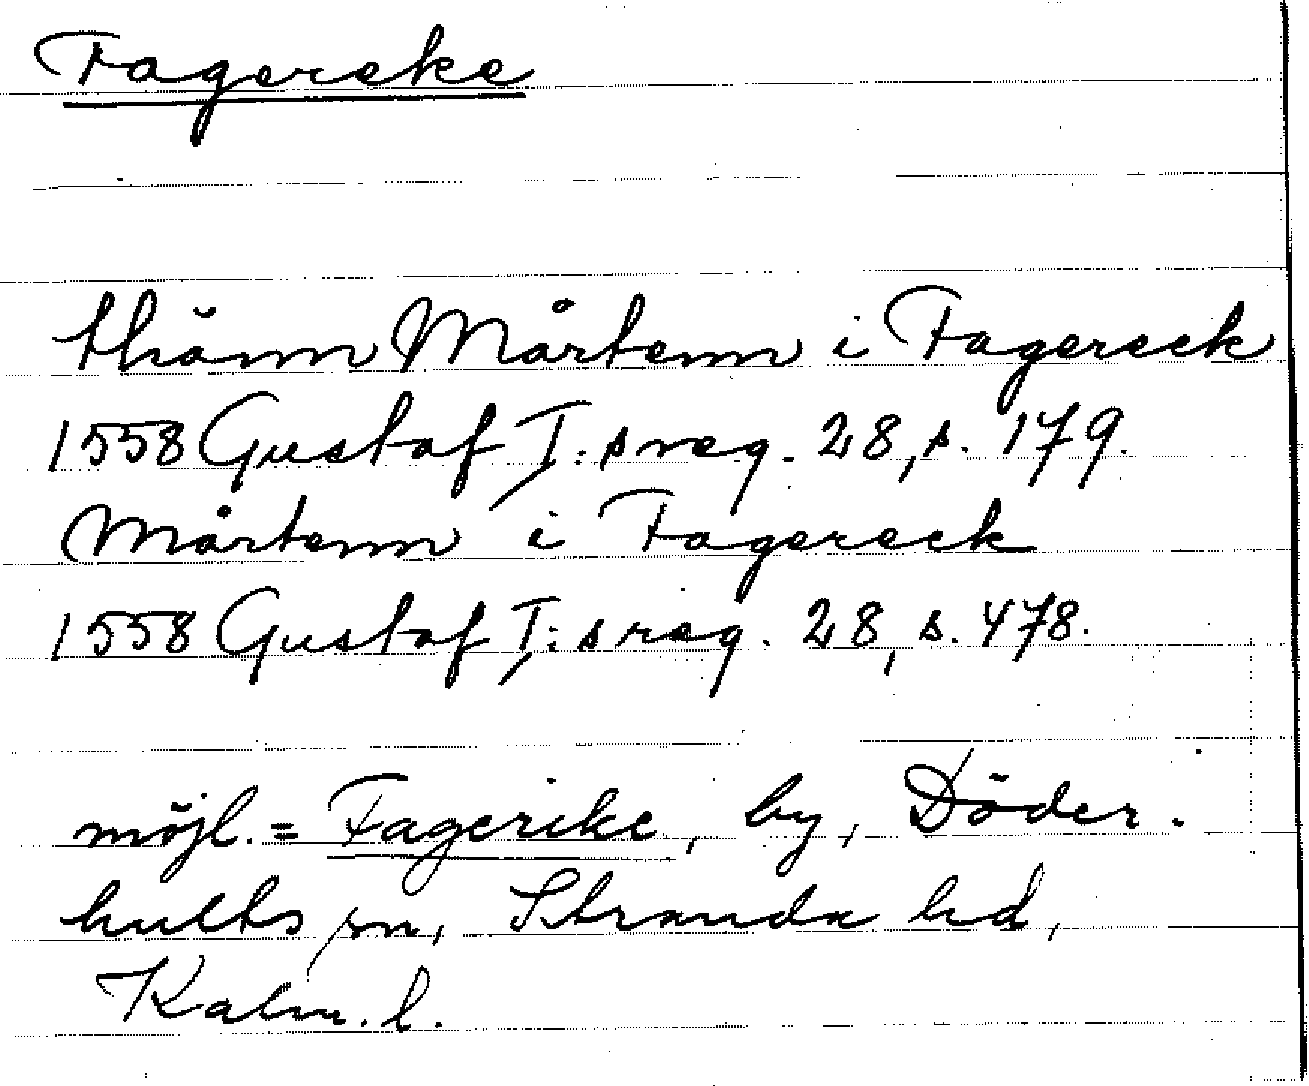 Fagereke
thönn Mårtenn i Fagereck
1558 Gustaf I:s reg. 28, s. 179.
Mårtenn i Fagereck
1558 Gustaf I:s reg. 28, s. 478.
möjl. = Fagerike, by, Döder-
hults sn, Stranda hd,
Kalm. l.